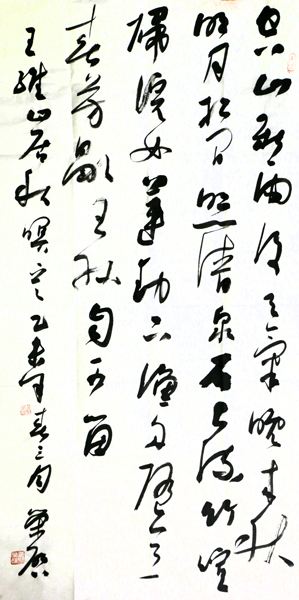 空山新雨后天气晚来秋
明月松间照清泉石上流竹喧
归浣女莲动下渔舟随意
春芳歇王孙自可留
王维山居秋暝之乙未年春三旬